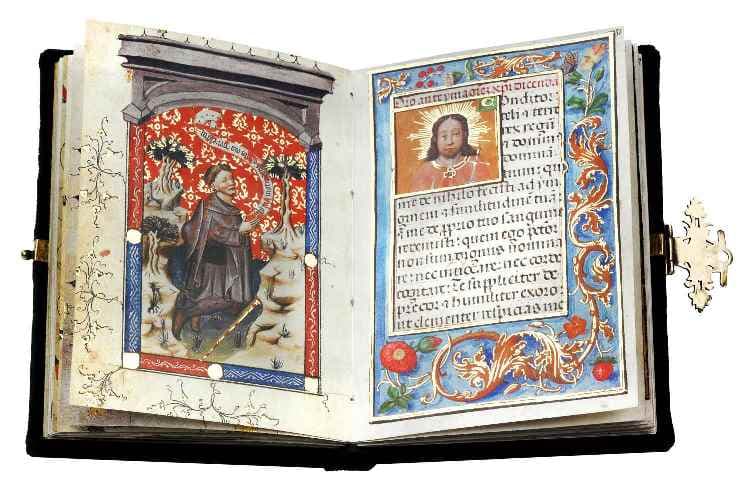 Oro ante ymaginē xpi dicenda
Onditor
celi & terr
rex regū
& dominꝰ
dominā
tium: qui
me de nihilo fecisti ad ym
ginem & similitudinē tuā:
& me de pprio tuo sanguine
redemisti: quem ego pctor
non sum dignus nomina
re: nec inuocare: nec corde
cogitare: te suppliciter de
precor & humiliter exoro
ut clementer respicias me